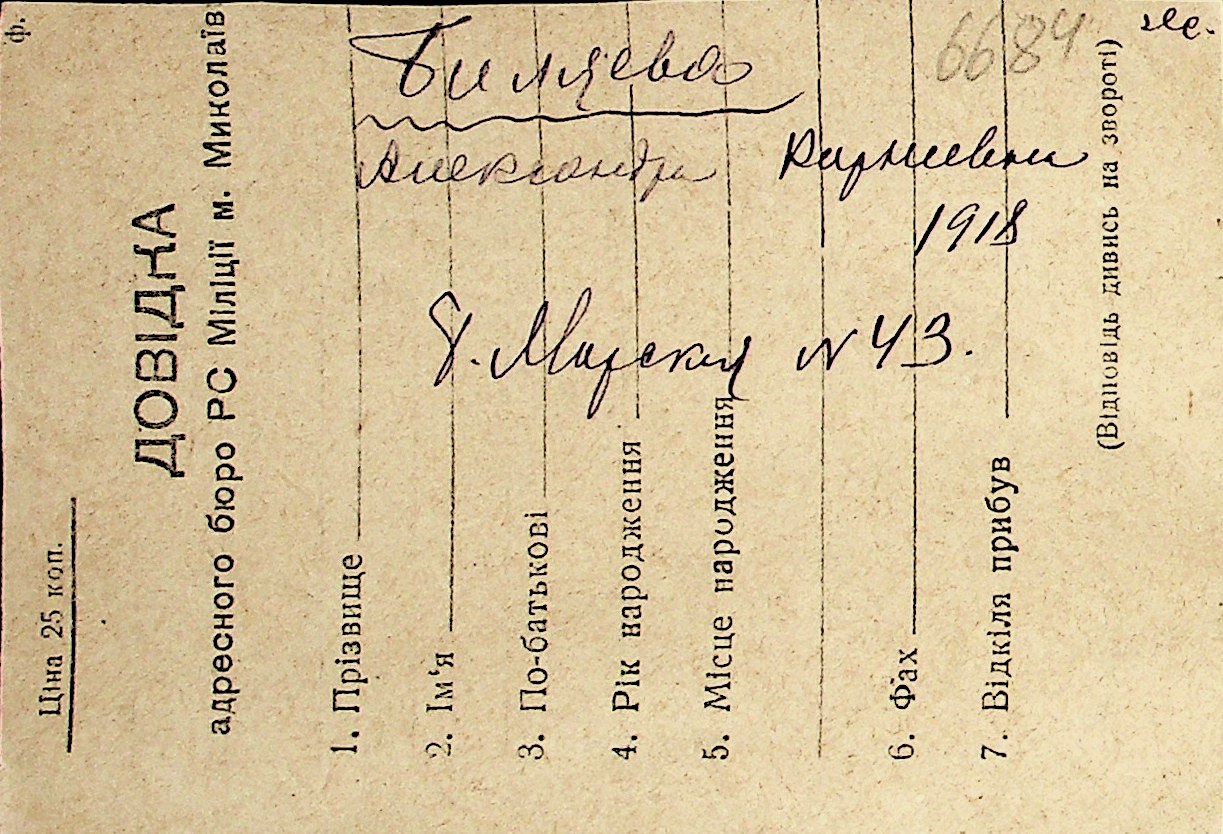 ф.
Ціна 25 коп.
ДОВІДКА
адресного бюро РС Міліції м. Миколаїв
1. Прізвище
2. Ім'я
3. По-батькові
4. Рік народження
5. Місце народження
6. Фах
7. Відкіля прибув
(Відповідь дивись на звороті)
6684
Биляева
Александра
1918
Морская N 43.